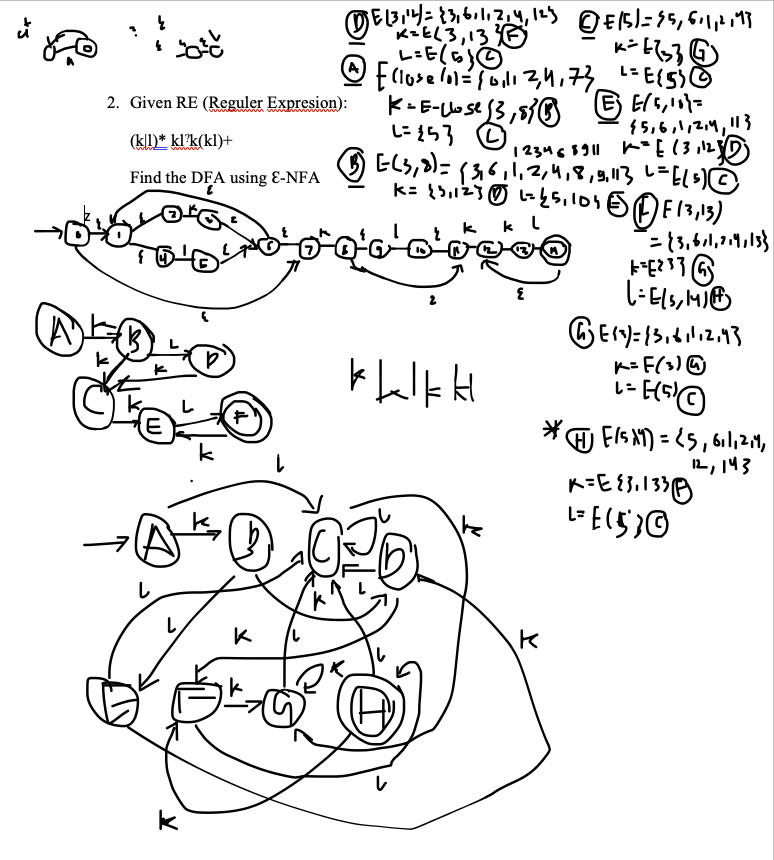 2. Given RE (Reguler Expresion):
(k|l)* kl?k(kl)+
Find the DFA using Ɛ-NFA
D E(3,12)={3,6,1,2,4,12}
K=E(3,13) F
L=E(5) C
A E(lose(0)={0,1,2,4,7}
K=E-Close{3,8} B
L={5} C
1 2 3 4 6 8 9 11
B E(3,8)={3,6,1,2,4,8,9,11}
K={3,12} D L={5,10} E
C E(5)={5,6,1,2,4}
K=E{3} G
L=E{5} C
E E(5,10)=
{5,6,1,2,4,11}
K=E(3,12) D
L=E(5) C
F F(3,13)
={3,6,1,2,4,13}
K=E{3} G
L=E(5,14) H
G E(3)={3,6,1,2,4}
K=E(3) G
L=E(5) C
* H E(5,14)={5,6,1,2,4,
12,14}
K=E{3,13} F
L=E(5) C
0 1 2 3 4 5 6 7 8 9 10 11 12 13 14
A K B L D
K K
C K E L F
K
k L L k k H
A K B C L D
L L K L K
L K L L K
E F K G K H
K L